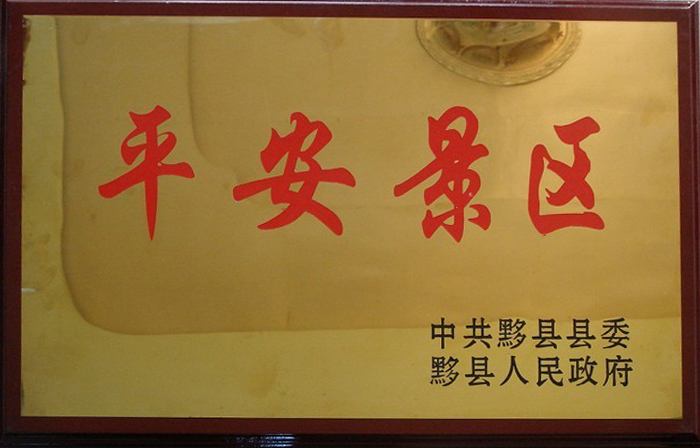 平安景区
中共黟县县委
黟县人民政府